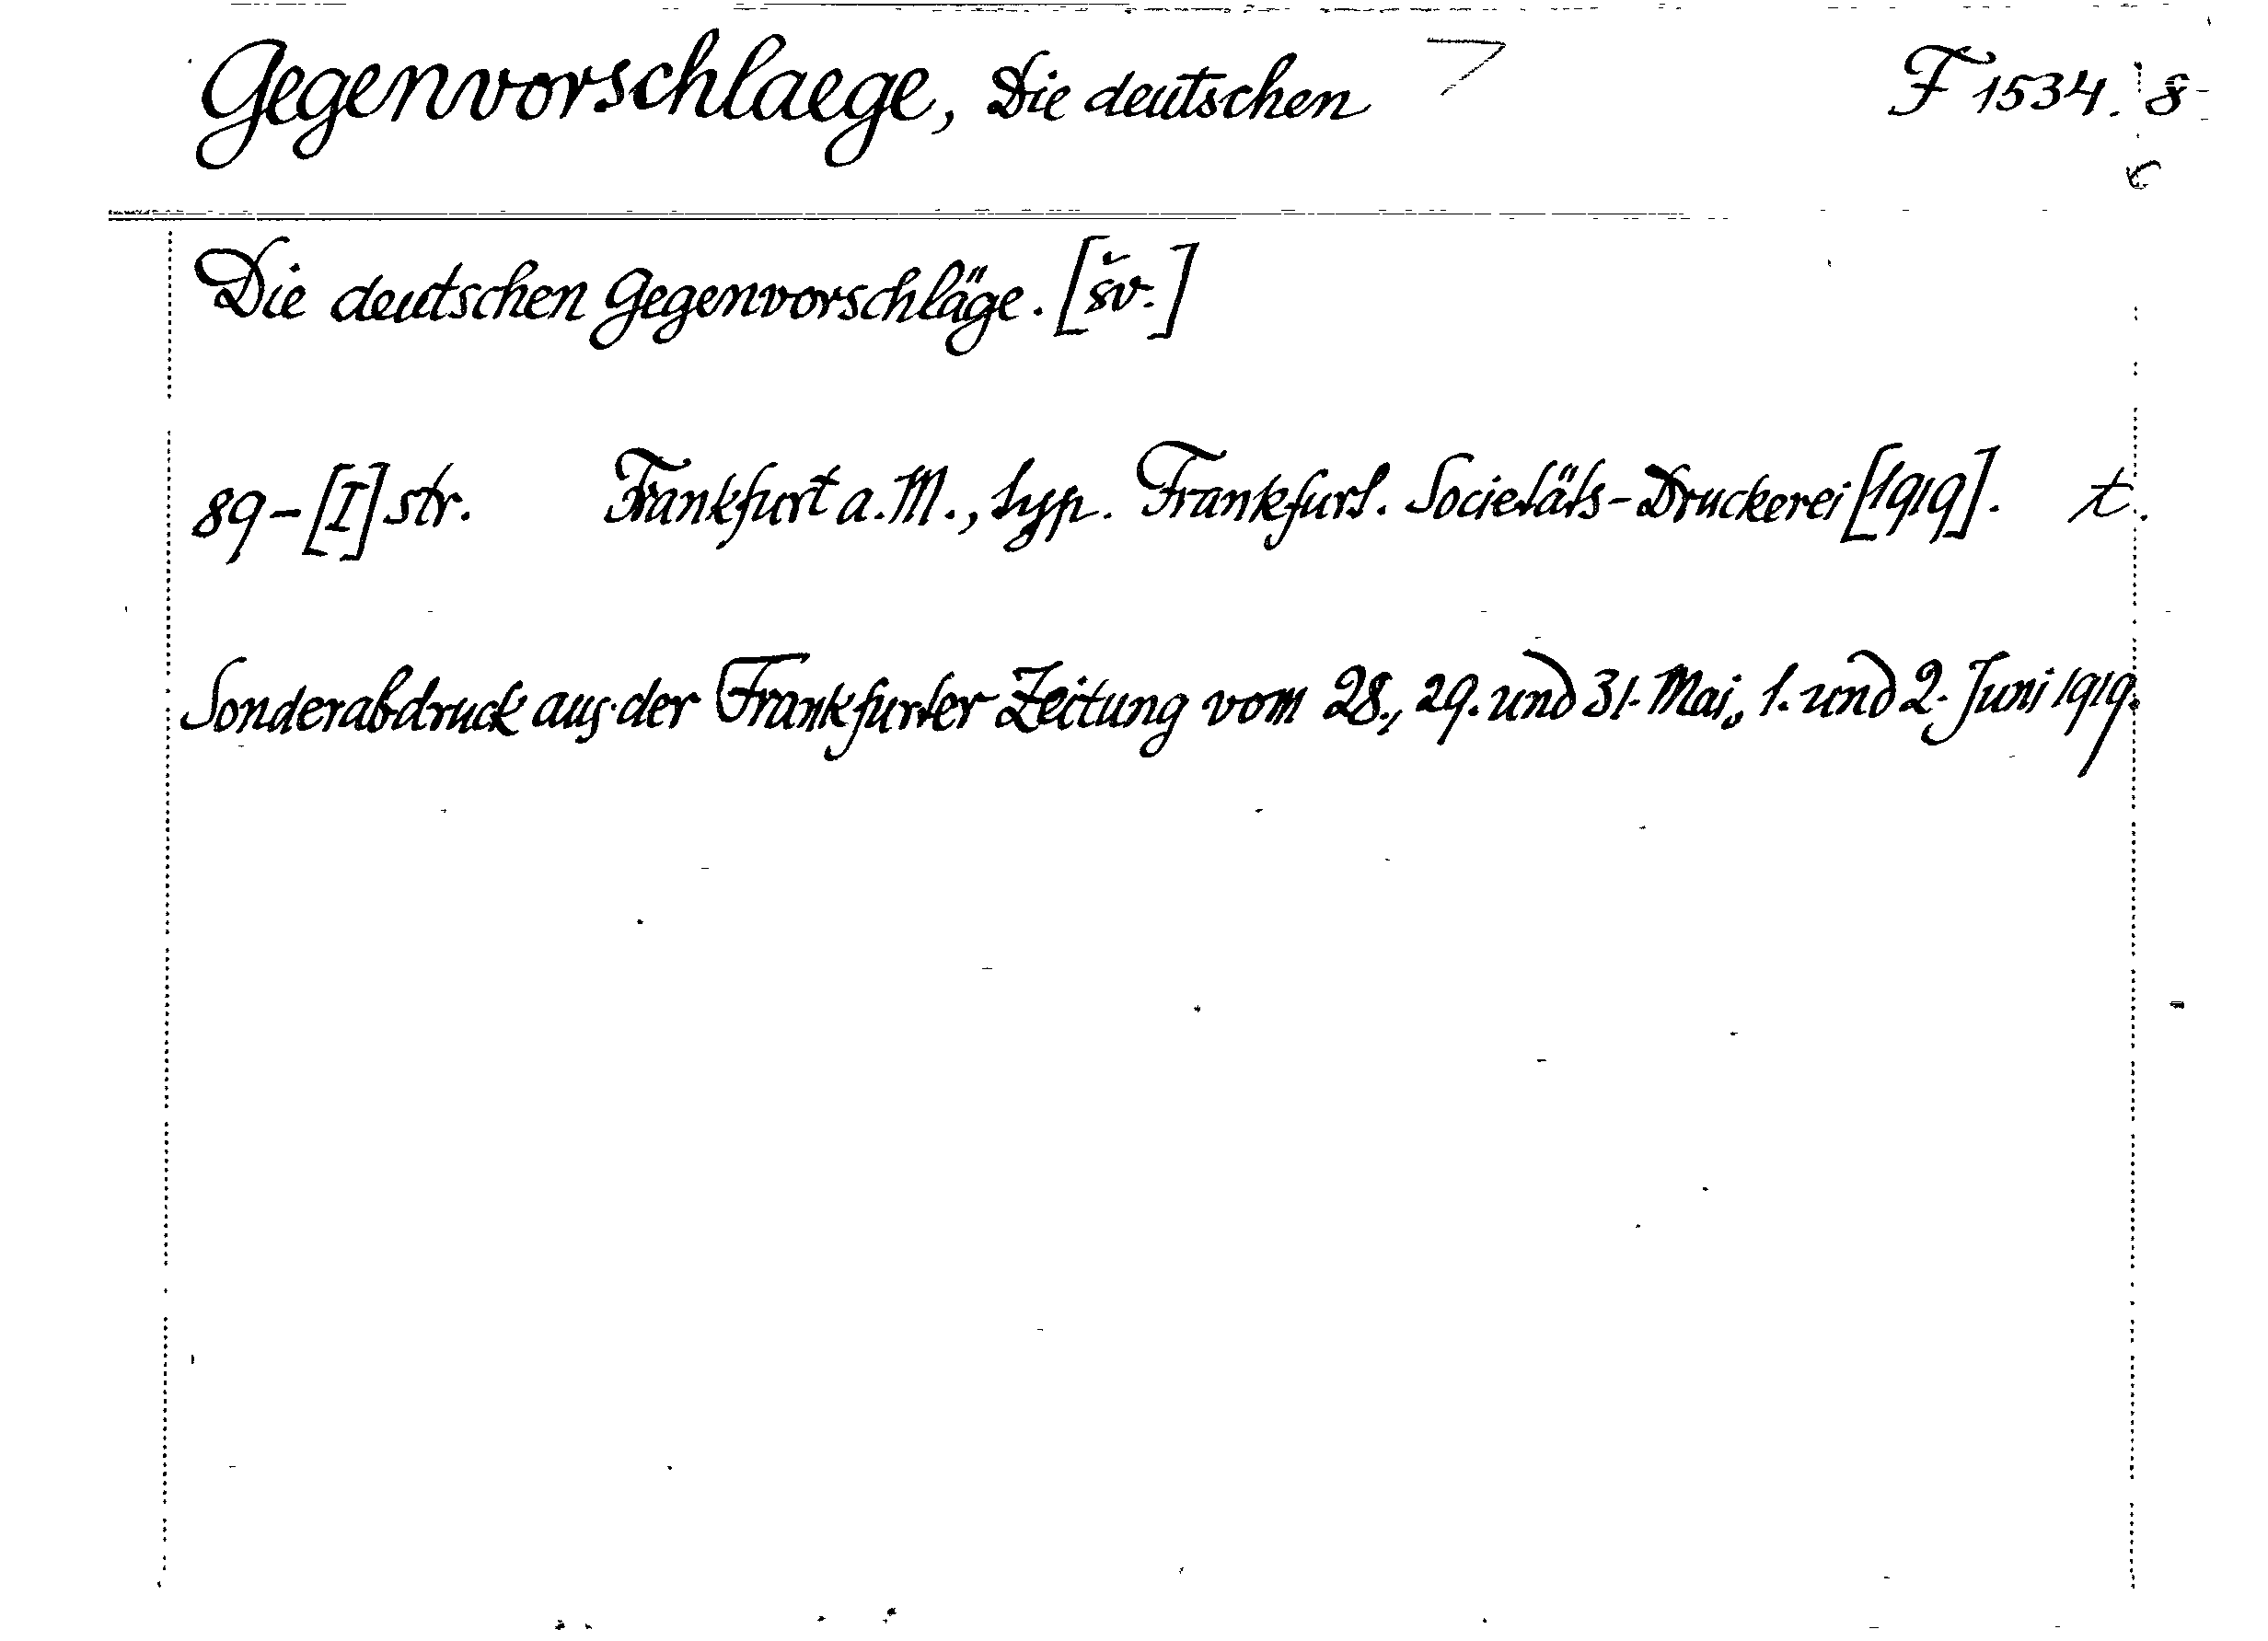 Gegenvorschlaege, Die deutschen F 1534. 8
Die deutschen Gegenvorschläge. [šv.]
89-[I] str. Frankfurt a. M., typ. Frankfurt. Societäts-Druckerei [1919]. t.
Sonderabdruck aus der Frankfurter Zeitung vom 28., 29. und 31. Mai, 1. und 2. Juni 1919.